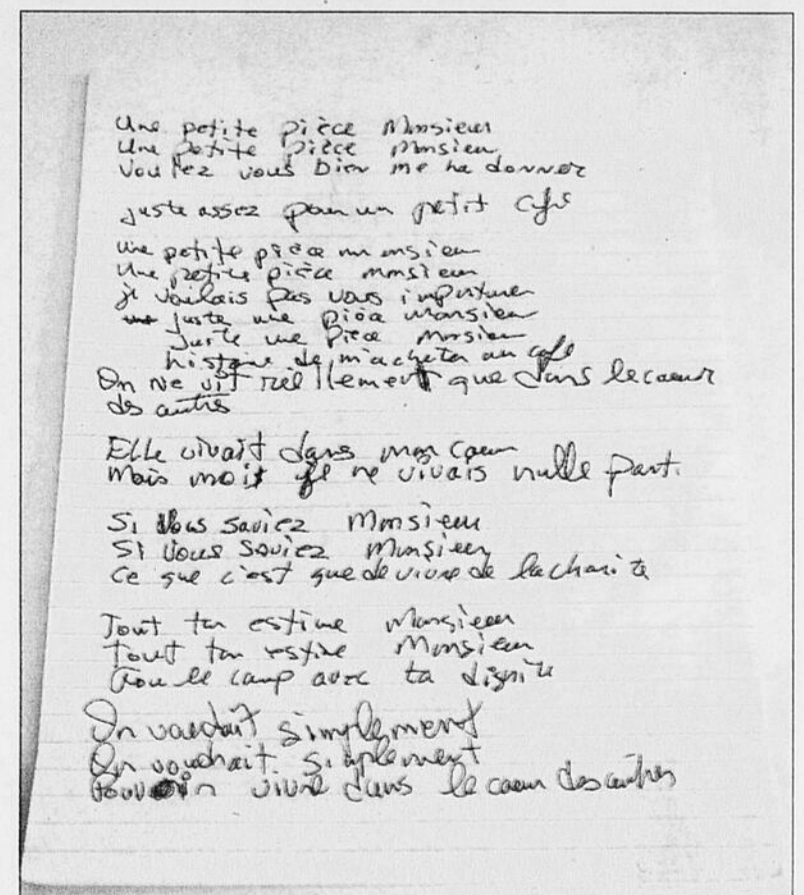 Une petite pièce Monsieur
Une petite pièce Monsieur
Voulez vous bien me la donner
juste assez pour un petit café
une petite pièce monsieur
Une petite pièce monsieur
je voulais pas vous importuner
juste une pièce monsieur
Juste une Pièce Monsieur
histoire de m'acheter un café
On ne vit réellement que dans le coeur
des autres
Elle vivait dans mon coeur
Mais moi je ne vivais nulle part.
Si Vous saviez Monsieur
Si Vous Saviez Monsieur
Ce que c'est que de vivre de la charité
Tout ton estime Monsieur
Tout ton estime Monsieur
Fou le camp avec ta dignité
On voudrait simplement
On voudrait simplement
Pouvoir vivre dans le coeur des autres